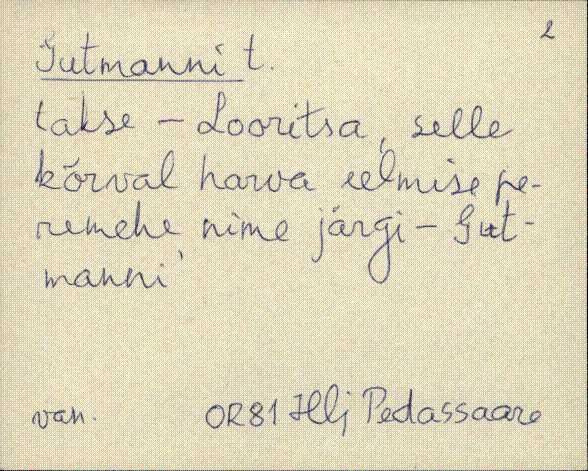 2
Gutmanni t.
takse – Looritsa, selle
kõrval harva eelmise pe-
remehe nime järgi – Gut-
manni'
van. OR81 Hlj Pedassaare